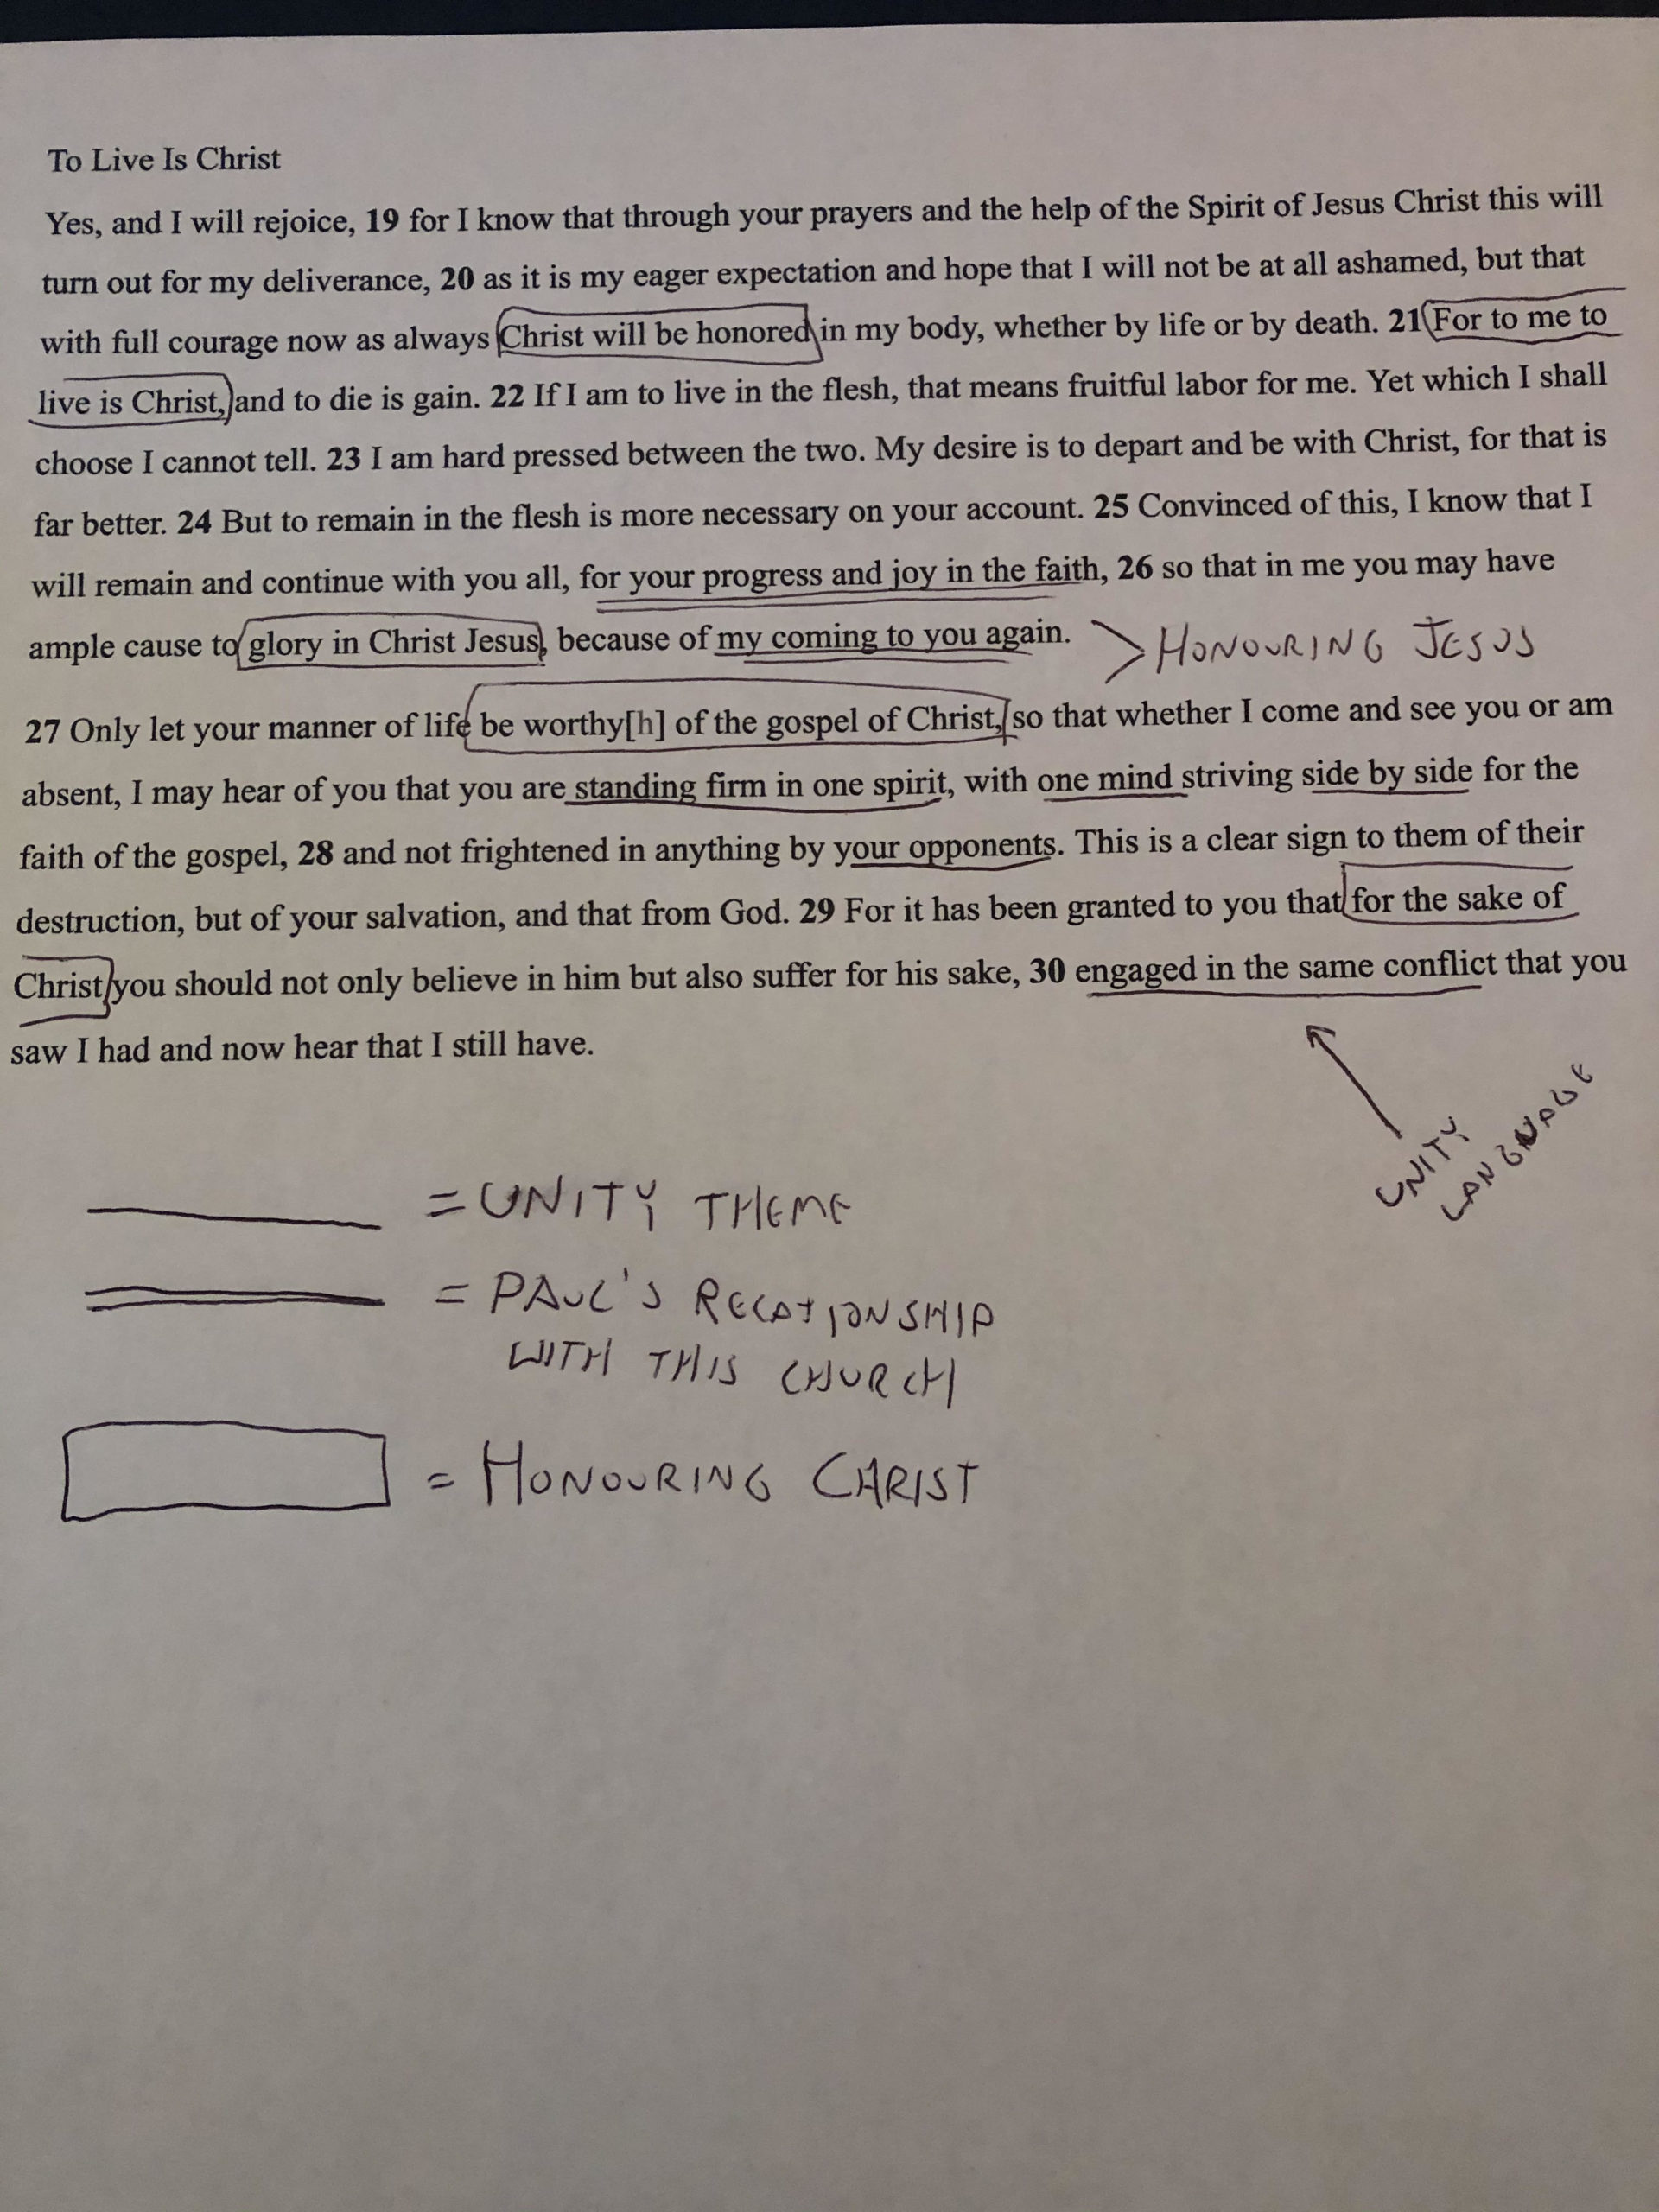 To Live Is Christ
Yes, and I will rejoice, 19 for I know that through your prayers and the help of the Spirit of Jesus Christ this will
turn out for my deliverance, 20 as it is my eager expectation and hope that I will not be at all ashamed, but that
with full courage now as always Christ will be honored in my body, whether by life or by death. 21 For to me to
live is Christ, and to die is gain. 22 If I am to live in the flesh, that means fruitful labor for me. Yet which I shall
choose I cannot tell. 23 I am hard pressed between the two. My desire is to depart and be with Christ, for that is
far better. 24 But to remain in the flesh is more necessary on your account. 25 Convinced of this, I know that I
will remain and continue with you all, for your progress and joy in the faith, 26 so that in me you may have
ample cause to glory in Christ Jesus, because of my coming to you again.
> HONOURING JESUS
27 Only let your manner of life be worthy[h] of the gospel of Christ, so that whether I come and see you or am
absent, I may hear of you that you are standing firm in one spirit, with one mind striving side by side for the
faith of the gospel, 28 and not frightened in anything by your opponents. This is a clear sign to them of their
destruction, but of your salvation, and that from God. 29 For it has been granted to you that for the sake of
Christ you should not only believe in him but also suffer for his sake, 30 engaged in the same conflict that you
saw I had and now hear that I still have.
UNITY
LANGUAGE
= UNITY THEME
= PAUL'S RELATIONSHIP
WITH THIS CHURCH
= HONOURING CHRIST